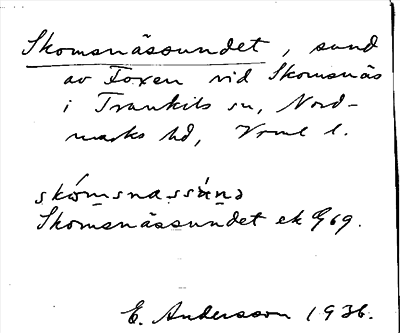 Skomsnäsundet, sund
av Foxen vid Skomsnäs
i Trankils sn, Nord-
marks hd, Vrml l.
skómsnassúnə
Skomsnässundet ek G69.
E. Andersson 1936.